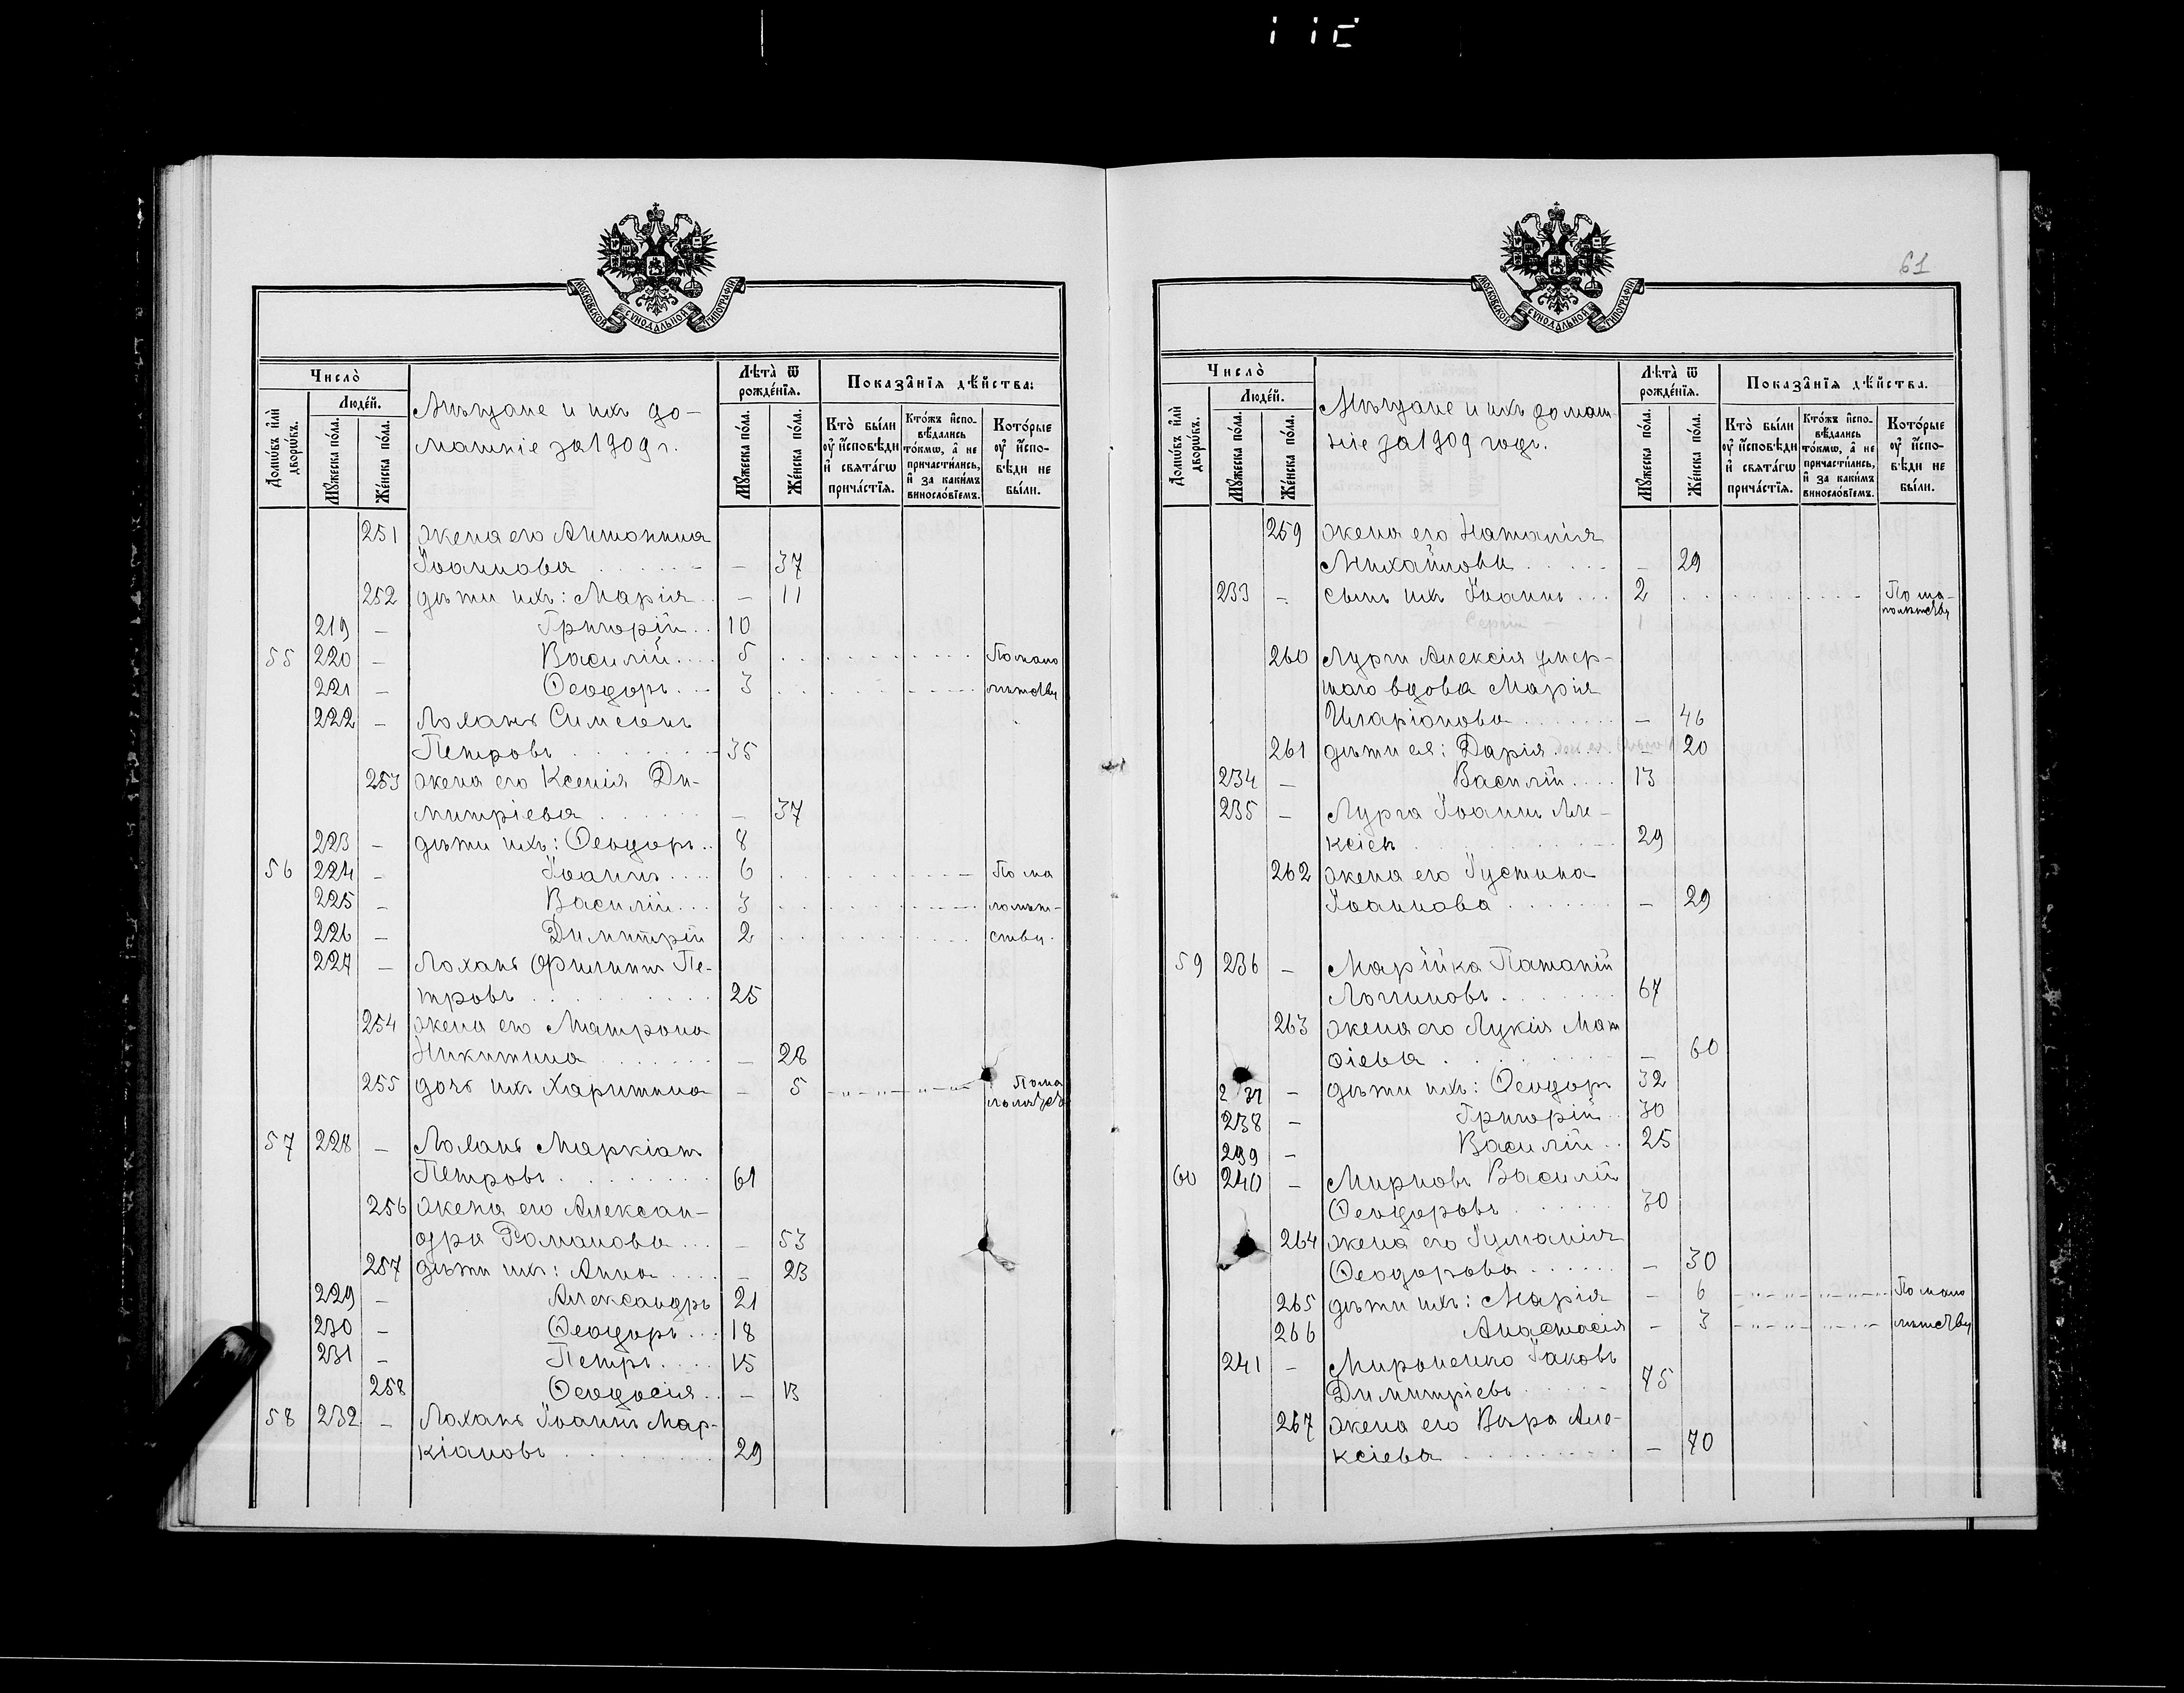 МОСКОВСКОЙ СѴНОДАЛЬНОЙ ТИПОГРАФІИ
Число̀
Людéй.
Домѡ́въ и҆лѝ дворѡ́въ.
Мꙋ́жеска по́ла.
Же́нска по́ла.
Мѣщане и ихъ до-
машніе за 1909 г.
Лѣта̀ ѿ рожде́нїѧ.
Мꙋ́жеска по́ла.
Же́нска по́ла.
Показа̑нїѧ дѣ́йства:
Кто̀ бы́ли ᲂу҆ и҆́сповѣди и҆ свѧта́гѡ прича́стїѧ.
Кто́жъ и҆спо-вѣ́дались то́кмѡ, а҆ не причасти́лись, и҆ за каки́мъ винослóвїемъ.
Кото́рые ᲂу҆ и҆́спо-вѣди не бы́ли.
251 жена его Антонина
Іоаннова - 37
252 дѣти ихъ: Марія - 11
219 - Григорій 10
55 220 - Василій 5 По мало
221 - Ѳеодоръ 3 лѣтству
222 - Лохань Симеонъ
Петровъ 35
253 жена его Ксенія Ди-
митріева - 37
223 - дѣти ихъ: Ѳеодоръ 8
56 224 - Іоаннъ 6 По ма
225 - Василій 3 лолѣт-
226 - Димитрій 2 ству.
227 - Лохань Филиппъ Пе-
тровъ 25
254 жена его Матрона
Никитина - 28
255 дочь ихъ Харитина - 5 По ма
57 228 - Лохань Маркіанъ
Петровъ 61
256 жена его Алексан-
дра Романова - 53
257 дѣти ихъ: Анна - 23
229 - Александръ 21
230 - Ѳеодоръ 18
231 - Петръ 15
258 Ѳеодосія - 13
58 232 - Лохань Іоаннъ Мар-
кіановъ 29
61
МОСКОВСКОЙ СѴНОДАЛЬНОЙ ТИПОГРАФІИ
Число̀
Людéй.
Домѡ́въ и҆лѝ дворѡ́въ.
Мꙋ́жеска по́ла.
Же́нска по́ла.
Мѣщане и ихъ домаш-
ніе за 1909 годъ.
Лѣта̀ ѿ рожде́нїѧ.
Мꙋ́жеска по́ла.
Же́нска по́ла.
Показа̑нїѧ дѣ́йства.
Кто̀ бы́ли ᲂу҆ и҆́сповѣди и҆ свѧта́гѡ прича́стїѧ.
Кто́жъ и҆спо-вѣ́дались то́кмѡ, а҆ не причасти́лись, и҆ за каки́мъ винослóвїемъ.
Кото́рые ᲂу҆ и҆́спо-вѣди не бы́ли.
259 жена его Наталія
Михайлова - 29
233 - сынъ ихъ Іоаннъ 2 По ма-
лолѣтству
Сергій 1
260 Лурги Алексія умер-
шаго вдова Марія
Иларіонова - 46
261 дѣти ея: Дарія - 20
234 - Василій 13
235 - Лурга Іоаннъ Але-
ксіевъ 29
262 жена его Іустина
Іоаннова - 29
59 236 - Марійка Патапій
Логгиновъ 67
263 жена его Лукія Мат
ѳіева - 60
237 - дѣти ихъ: Ѳеодоръ 32
238 - Григорій 30
239 - Василій 25
60 240 - Мирновъ Василій
Ѳеодоровъ 30
264 жена его Іуліанія
Ѳеодорова - 30
265 дѣти ихъ: Марія - 6 По мало
266 Анастасія - 3 лѣтству
241 - Мироненко Іаковъ
Димитріевъ 75
267 жена его Вѣра Але-
ксіева - 70